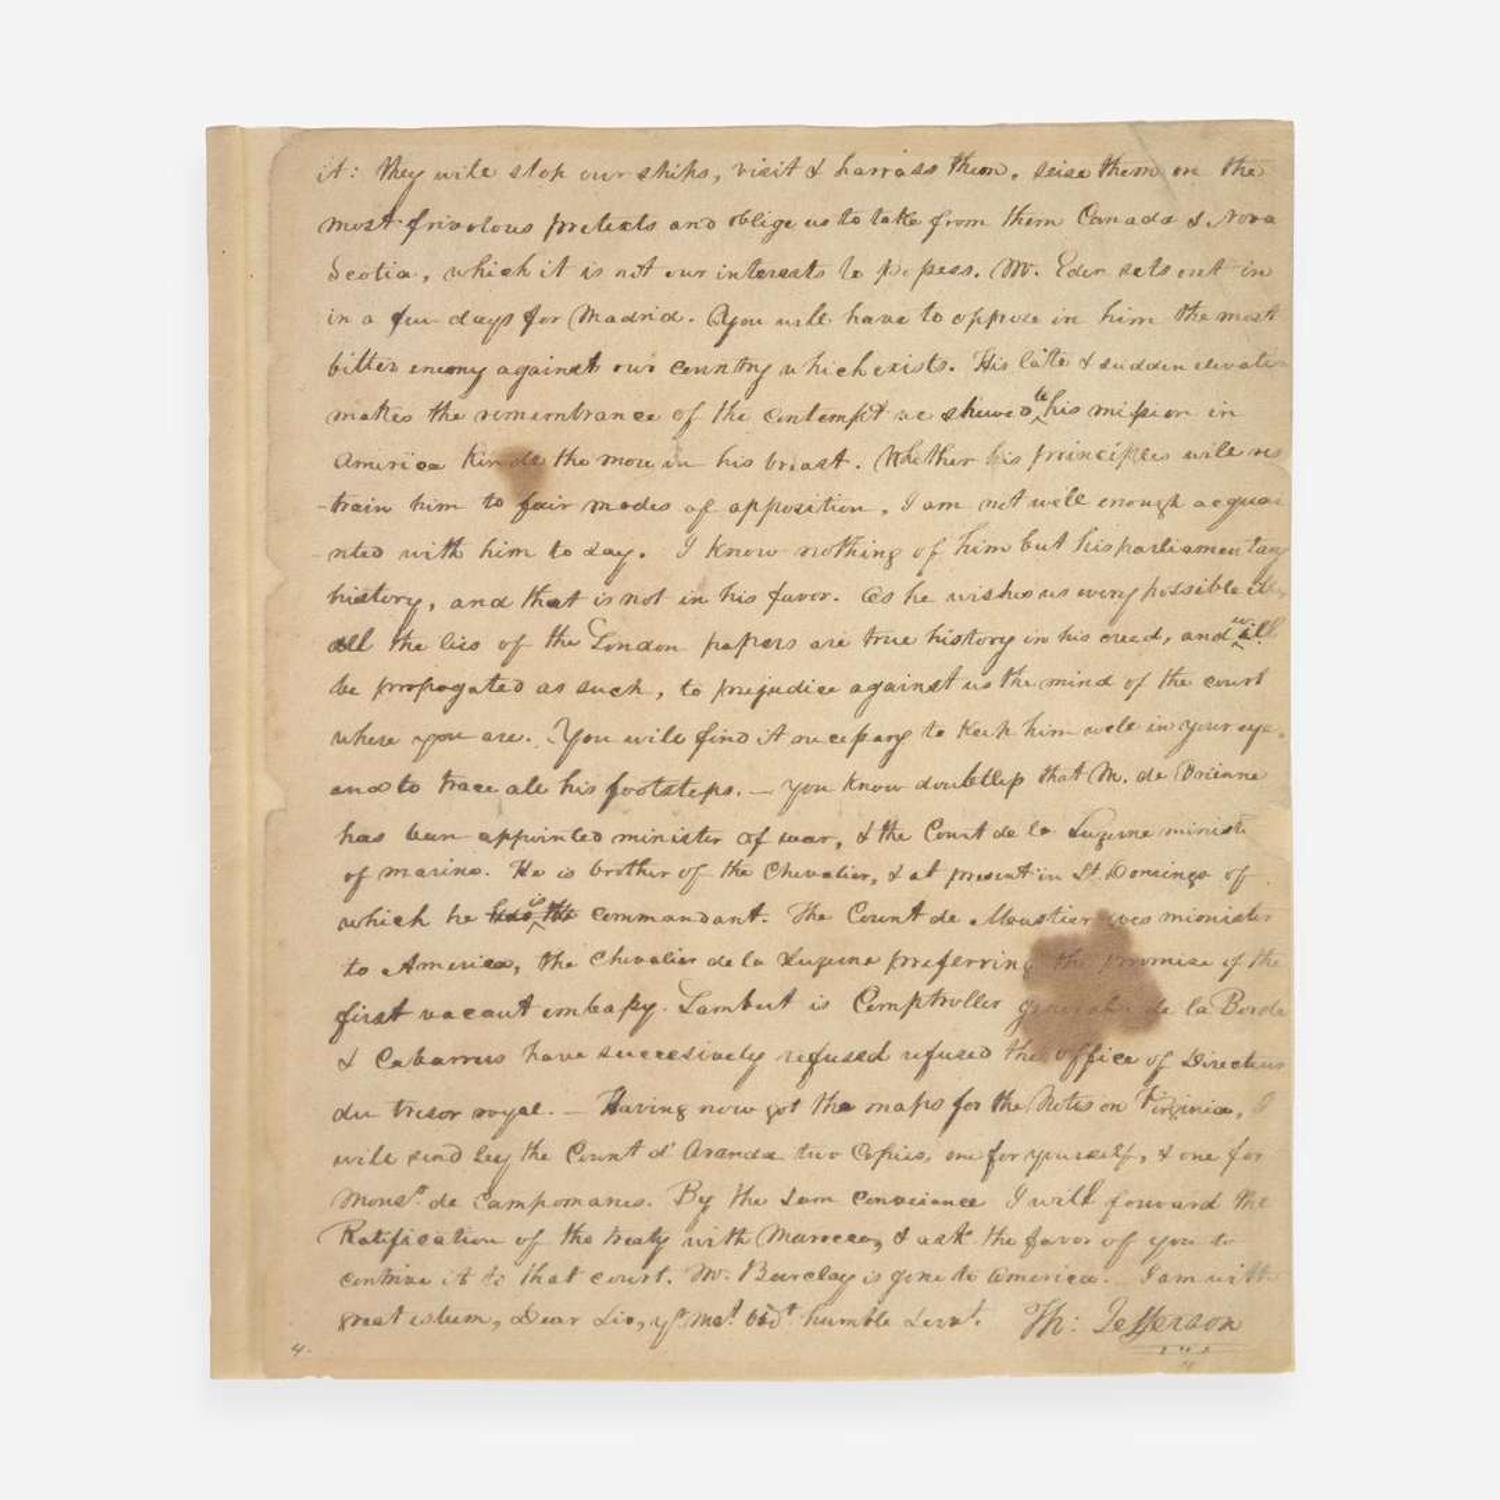 it: they will stop our ships, visit & harrass them, seise them on the
most frivolous pretexts and oblige us to take from them Canada & Nova
Scotia, which it is not our interests to possess. Mr. Eden sets out in
in a few days for Madrid. You will have to oppose in him the most
bitter enemy against our country which exists. His late & sudden elevation
makes the remembrance of the contempt we shewed to his mission in
America kindle the more in his breast. Whether his principles will res
-train him to fair modes of opposition, I am not well enough acquai
nted with him to say. I know nothing of him but his parliamentary
history, and that is not in his favor. As he wishes us every possible ill,
all the lies of the London papers are true history in his creed, and will
be propogated as such, to prejudice against us the mind of the court
where you are. You will find it necessary to keep him well in your eye,
and to trace all his footsteps. — You know doubtless that M. de Brienne
has been appointed minister of war, & the Count de la Luzerne minister
of marine. He is brother of the Chevalier, & at present in St. Domingo of
which he is commandant. The Count de Moustier goes minister
to America, the Chevalier de la Luzerne preferring the promise of the
first vacant embassy. Lambert is Comptroller general de la Borde
& Cabarrus have succesively refused refused the office of Directeur
du tresor royal. — Having now got the maps for the Notes on Virginia, I
will send by the Count d'Aranda two Copies, one for yourself, & one for
Monsr. de Campomanes. By the same I will forward the
Ratification of the treaty with Marocco, & ask the favor of you to
contrive it to that court. Mr. Barclay is gone to America. I am with
great esteem, Dear Sir, yr. mot. obdt. humble Servt. Th: Jefferson
4.